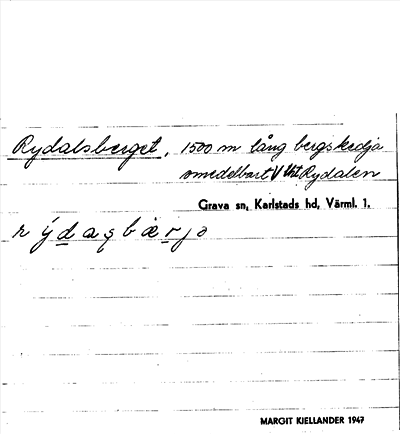 Rydalsberget, 1500 m lång bergskedja
omedelbart V Rydalen
Grava sn, Karlstads hd, Värml. l.
MARGIT KJELLANDER 1947